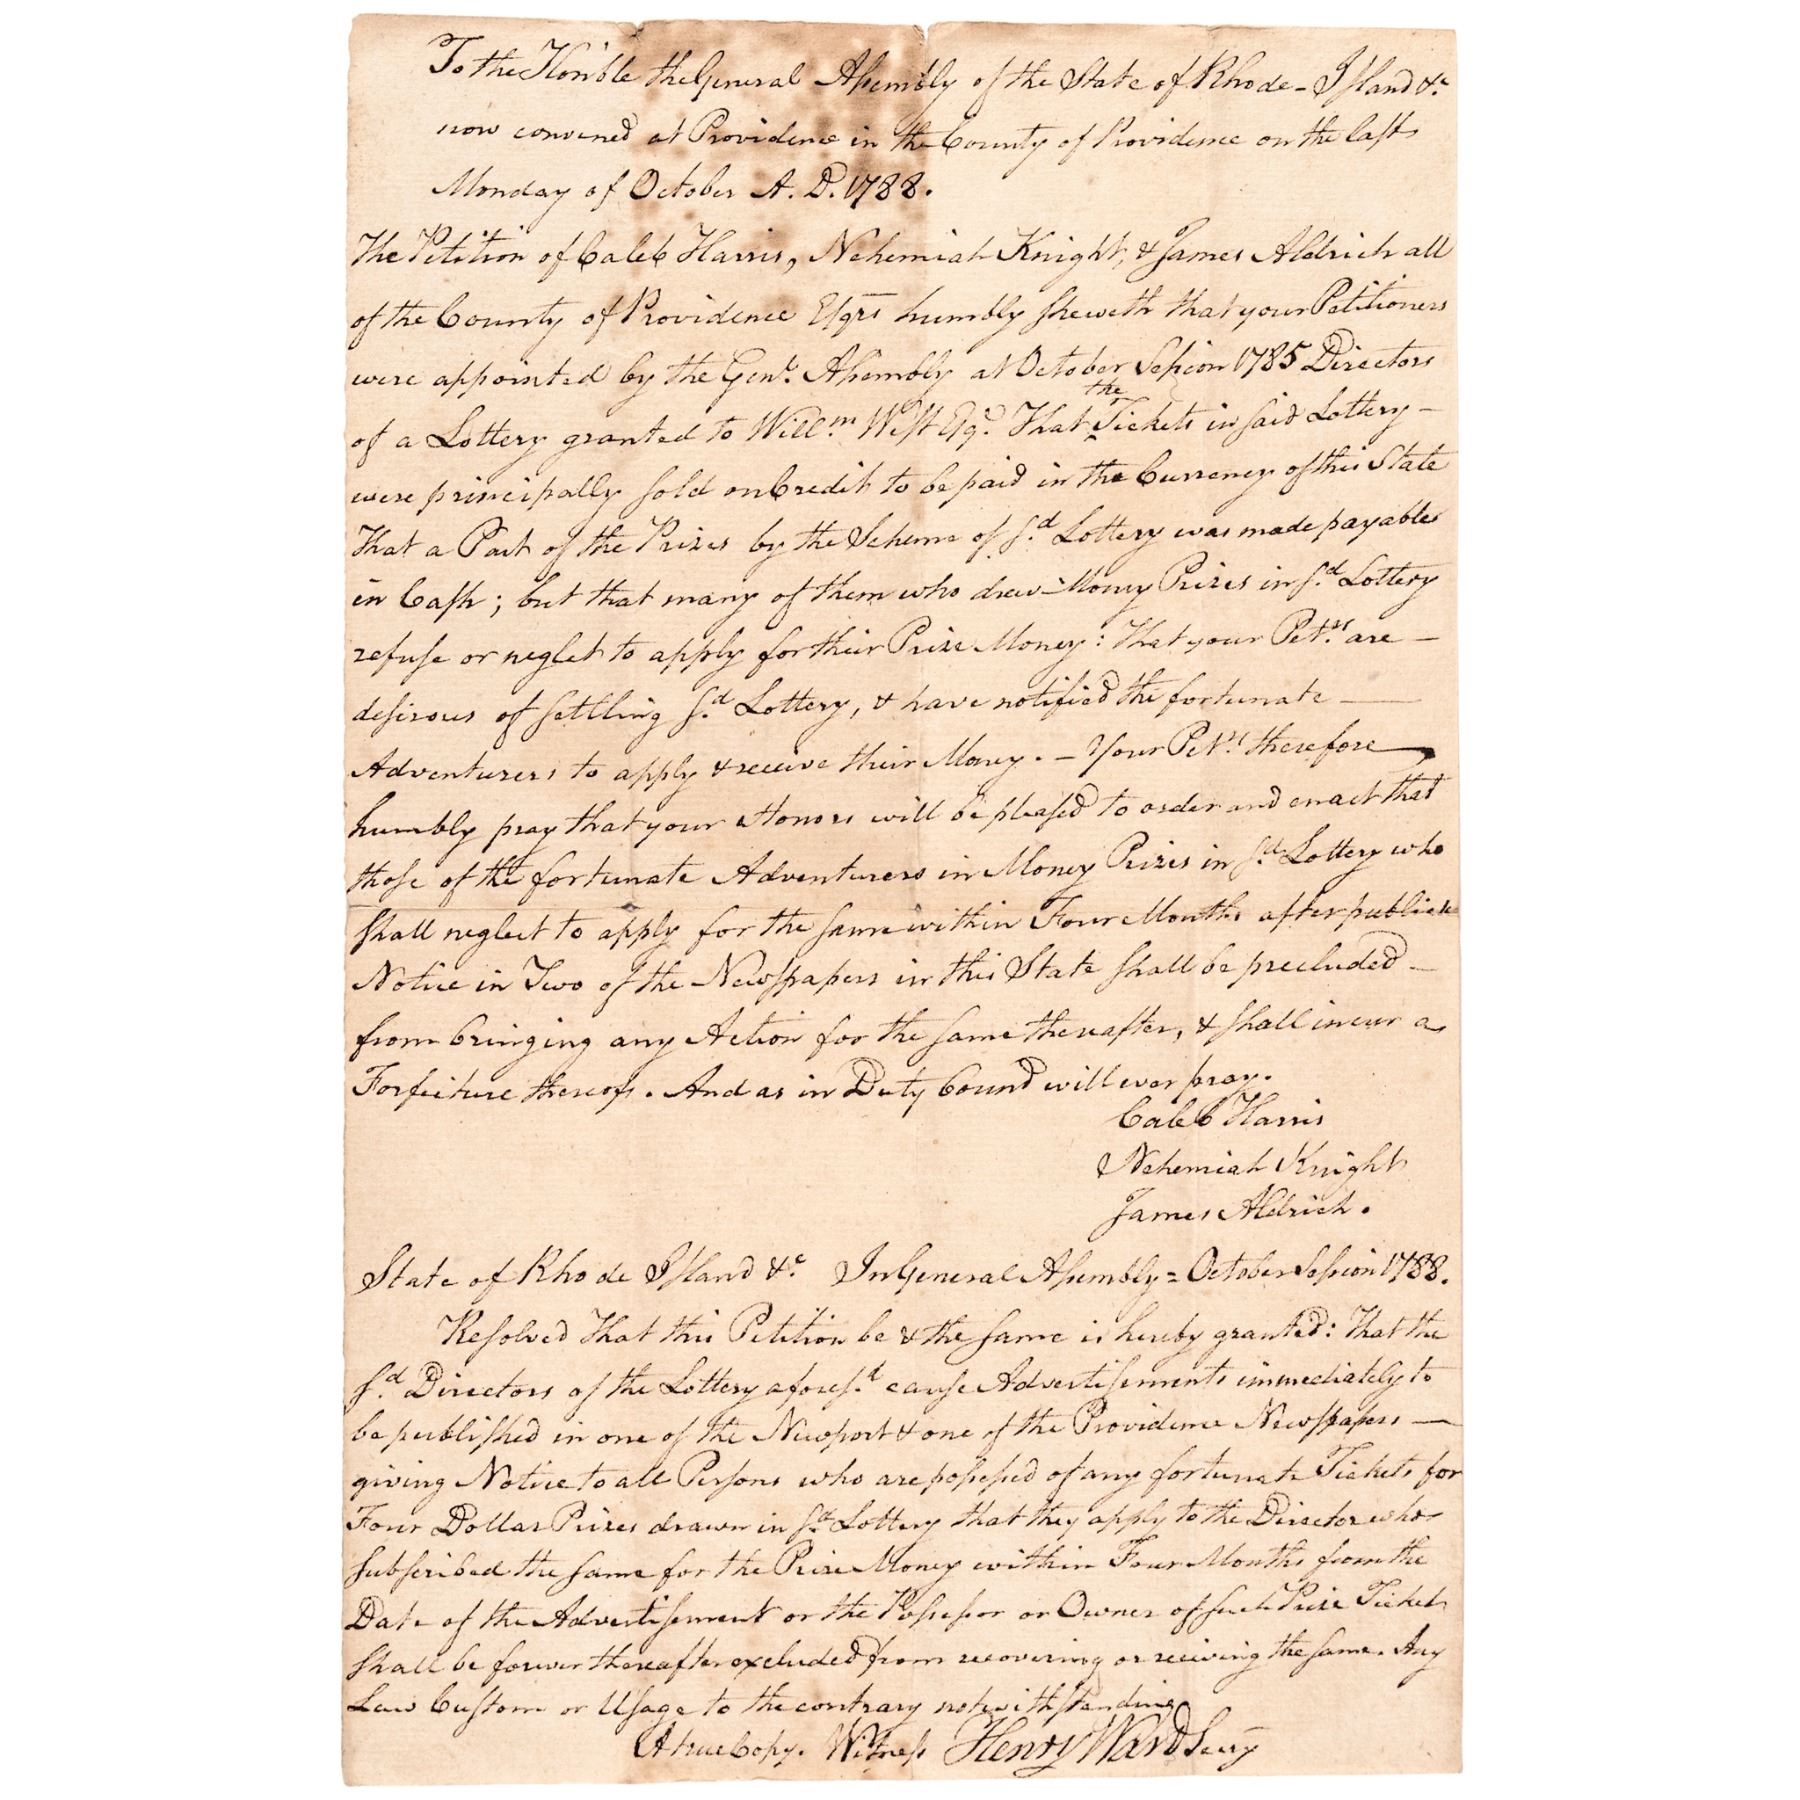 To the Honble the General Assembly of the State of Rhode-Island &c
now convened at Providence in the County of Providence on the last
Monday of October A. D. 1788.
The Petition of Caleb Harris, Nehemiah Knight, & James Aldrich all
of the County of Providence Esqrs humbly sheweth that your Petitioners
were appointed by the Genl. Assembly at October Session 1785 Directors
of a Lottery granted to Willm. West Esqr. That the Tickets in said Lottery –
were principally sold on Credit to be paid in the Currency of this State
That a Part of the Prizes by the Scheme of sd. Lottery was made payable
in Cash; but that many of them who drew Money Prizes in sd. Lottery
refuse or neglet to apply for their Prize Money: That your Petrs. are –
desirous of settling sd. Lottery, & have notified the fortunate —
Adventurers to apply & receive their Money. – Your Petrs. therefore
humbly pray that your Honors will be pleased to order and enact that
those of the fortunate Adventurers in Money Prizes in sd. Lottery who
shall neglect to apply for the same within Four Months after publick
Notice in Two of the Newspapers in this State shall be precluded –
from bringing any Action for the same thereafter, & shall incur a
Forfeiture thereof. And as in Duty bound will ever pray.
Caleb Harris
Nehemiah Knight
James Aldrich.
State of Rhode Island &c. In General Assembly = October Session 1788.
Resolved That this Petition be & the same is hereby granted: That the
sd. Directors of the Lottery aforesd. cause Advertisements immediately to
be published in one of the Newport & one of the Providence Newspapers —
giving Notice to all Persons who are possessed of any fortunate Tickets for
Four Dollar Prizes drawn in sd. Lottery that they apply to the Director who
subscribed the same for the Prize Money within Four Months from the
Date of the Advertisement or the Possessor or Owner of such Prize Ticket
shall be forever thereafter excluded from recovering or receiving the same. Any
Law Custom or Usage to the contrary notwithstanding
A true Copy. Witness Henry Ward Secry